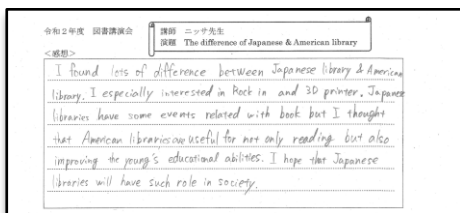 令和２年度　図書講演会
講師　ニッサ先生
演題　The difference of Japanese & American library
＜感想＞
I found lots of difference between Japanese library & American
library. I especially interested in Rock in and 3D printer. Japanese
libraries have some events related with book but I thought
that American libraries are useful for not only reading but also
improving the young's educational abilities. I hope that Japanese
libraries will have such role in society.